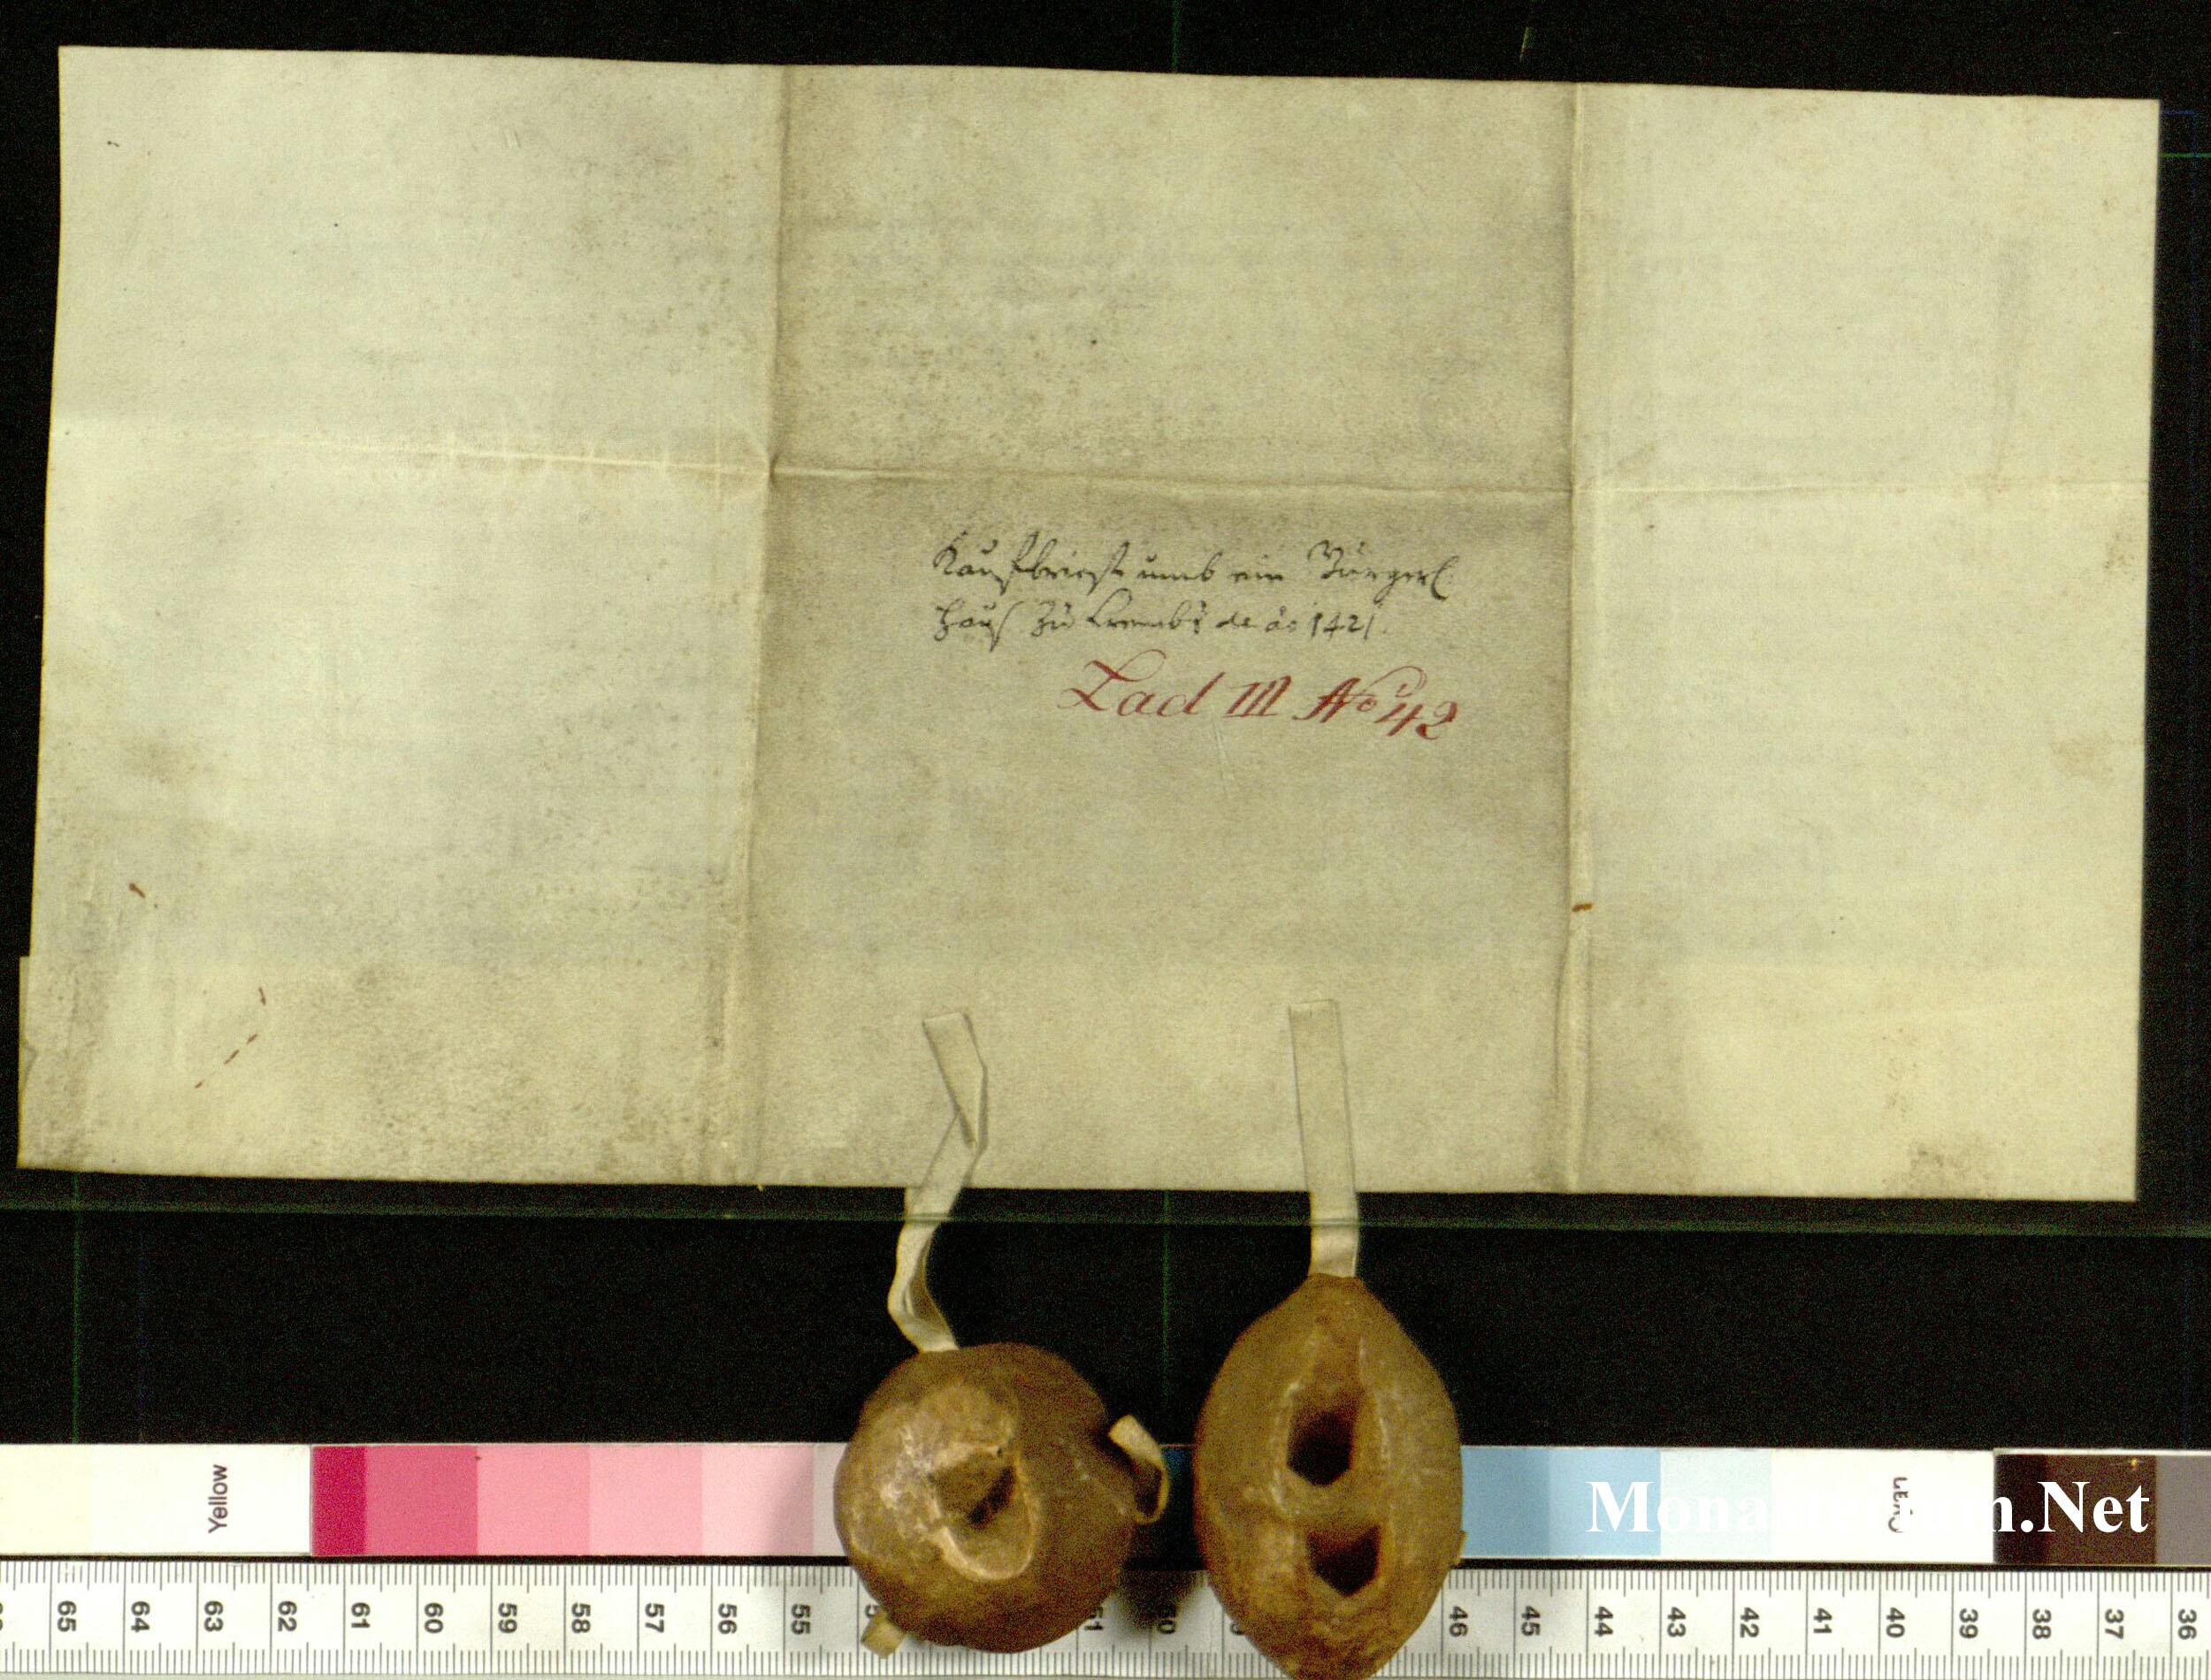 Kauffbrieff umb ein Burgerl:
Hauß zu Crembs de ao 1421.
Lad III No 42
Yellow
65 64 63 62 61 60 59 58 57 56 55 51 50 46 45 44 43 42 41 40 39 38 37 36